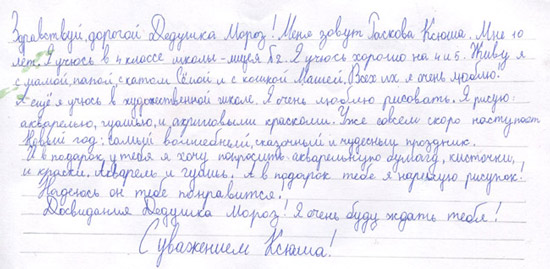 Здравствуй, дорогой Дедушка Мороз! Меня зовут Гаскова Ксюша. Мне 10
лет. Я учюсь в 4 классе школы-лицея №2. Я учусь хорошо на 4 и 5. Живу я
с мамой, папой, с котом Сёмой и с кошкой Машей. Всех их я очень люблю.
Я ещё я учюсь в художественной школе. Я очень люблю рисовать. Я рисую:
акварелью, гуашью, и акриговыми красками. Уже совсем скоро наступает
Новый год: самый волшебный, сказочный и чудесный праздник.
И в подарок у тебя я хочу попросить: акварельную бумагу, кисточки,
и краски. Акварель и гуашь. А в подарок тебе я нарисую рисунок!
Надеюсь он тебе понравится!
Досвидания Дедушка Мороз! Я очень буду ждать тебя!
С уважением Ксюша!